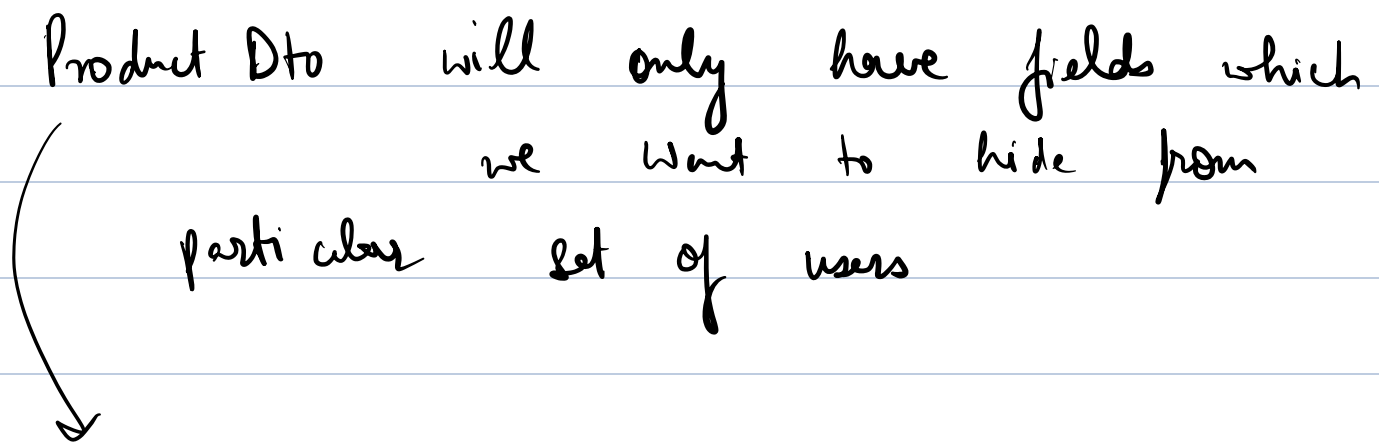 Product Dto will only have fields which
we want to hide from
particular set of users